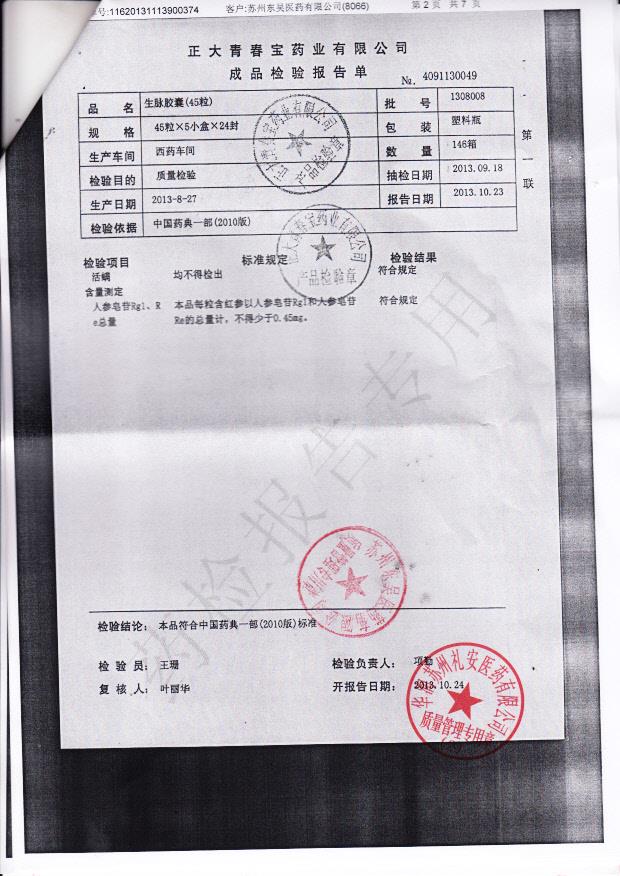 号:11620131113900374 客户:苏州东吴医药有限公司(8066) 第 2 页 共 7 页
正大青春宝药业有限公司
成品检验报告单
№. 4091130049
品 名 生脉胶囊(45粒) 批 号 1308008
规 格 45粒×5小盒×24封 包 装 塑料瓶
生产车间 西药车间 数 量 146箱
检验目的 质量检验 抽检日期 2013.09.18
生产日期 2013-8-27 报告日期 2013.10.23
检验依据 中国药典一部(2010版)
第一联
正大青春宝药业有限公司
产品检验章
正大青春宝药业有限公司
产品检验章
检验项目 标准规定 检验结果
活螨 均不得检出 符合规定
含量测定
人参皂苷Rg1、R 本品每粒含红参以人参皂苷Rg1和人参皂苷 符合规定
e总量 Re的总量计，不得少于0.45mg.
药检报告专用
苏州东吴医药有限公司
检验结论: 本品符合中国药典一部(2010版)标准
检 验 员: 王珊 检验负责人: 项勤
复 核 人: 叶丽华 开报告日期: 2013.10.24
苏州礼安医药有限公司
质量管理专用章